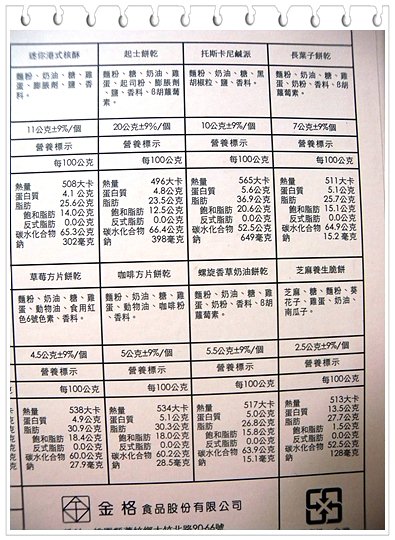 迷你港式核酥 起士餅乾 托斯卡尼鹹派 長葉子餅乾
麵粉、奶油、糖、雞 麵粉、糖、奶油、雞 麵粉、奶油、糖、黑 麵粉、糖、奶油、雞
蛋、膨脹劑、鹽、香 蛋、起司粉、膨脹劑 胡椒粒、鹽、香料。 蛋、奶粉、香料、ß胡
料。 、鹽、香料、ß胡蘿蔔 蘿蔔素。
素。
11公克±9%/個 20公克±9%/個 10公克±9%/個 7公克±9%個
營養標示 營養標示 營養標示 營養標示
每100公克 每100公克 每100公克 每100公克
熱量 508大卡 熱量 496大卡 熱量 565大卡 熱量 511大卡
蛋白質 4.1 公克 蛋白質 4.8公克 蛋白質 5.6公克 蛋白質 5.1公克
脂肪 25.6公克 脂肪 23.5公克 脂肪 36.9公克 脂肪 25.7公克
飽和脂肪 14.0公克 飽和脂肪 12.5公克 飽和脂肪 20.6公克 飽和脂肪 15.1公克
反式脂肪 0.0公克 反式脂肪 0.0公克 反式脂肪 0.0公克 反式脂肪 0.0公克
碳水化合物 65.3公克 碳水化合物 66.4公克 碳水化合物 52.5公克 碳水化合物 64.9公克
鈉 302毫克 鈉 398毫克 鈉 649毫克 鈉 15.2 毫克
草莓方片餅乾 咖啡方片餅乾 螺旋香草奶油餅乾 芝麻養生脆餅
麵粉、奶油、糖、雞 麵粉、奶油、糖、雞 麵粉、奶油、糖、雞 芝麻、糖、麵粉、葵
蛋、動物油、食用紅 蛋、動物油、咖啡粉 蛋、奶粉、香料、ß胡 花子、雞蛋、奶油、
色6號色素、香料。 、香料。 蘿蔔素。 南瓜子。
4.5公克±9%/個 5公克±9%/個 5.5公克±9%/個 2.5公克±9%/個
營養標示 營養標示 營養標示 營養標示
每100公克 每100公克 每100公克 每100公克
熱量 538大卡 熱量 534大卡 熱量 517大卡 熱量 513大卡
蛋白質 4.9公克 蛋白質 5.1公克 蛋白質 5.0公克 蛋白質 13.5公克
脂肪 30.9公克 脂肪 30.3公克 脂肪 26.8公克 脂肪 27.7公克
飽和脂肪 18.4公克 飽和脂肪 18.0公克 飽和脂肪 15.8公克 飽和脂肪 1.5公克
反式脂肪 0.0公克 反式脂肪 0.0公克 反式脂肪 0.0公克 反式脂肪 0.0公克
碳水化合物 60.0公克 碳水化合物 60.2公克 碳水化合物 63.9公克 碳水化合物 52.5公克
鈉 27.9毫克 鈉 28.5毫克 鈉 15.1毫克 鈉 128毫克
金格食品股份有限公司